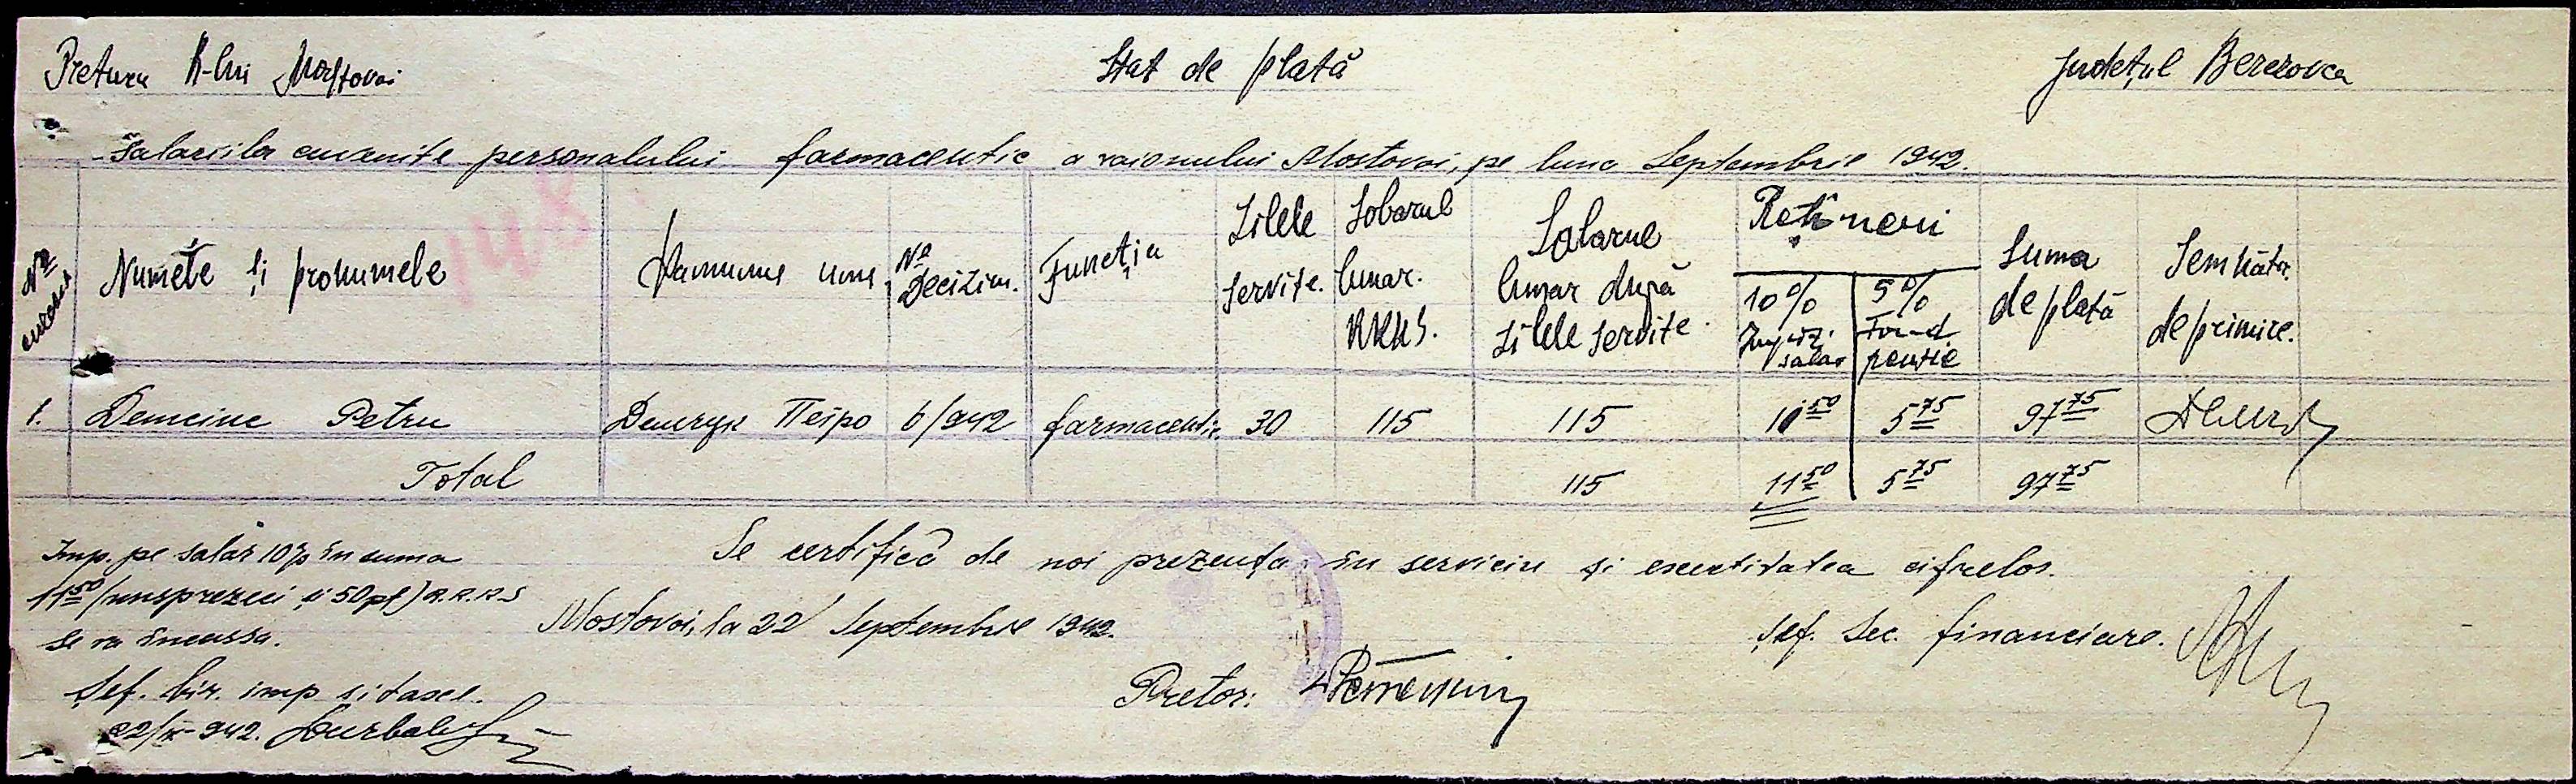 Pretura R-lui Mostovoi
Stat de plată
Județul Berezovca
Salariilor cuvenite personalului farmaceutic a raionului Mostovoi, pe luna Septembrie 1942.
148
No curent
Numele și pronumele
No Decizim.
Funcția
Zilele servite.
Sobarul lunar. RKKS.
Salarul lunar după zilele servite.
Rețineri
10% Impoz. salar
5% Fond pensie
Suma de plată
Semnătu. de primire.
1. Demciuc Petru Демчук Петро 6/942 farmaceutic 30 115 115 11 50 5 75 97 75
Total 115 11 50 5 75 97 75
Imp. pe salar 10% în suma
11 50 (unsprezeci și 50 pf) R.K.K.S
se va încassa.
Șef. bir. imp și taxe.
22/IX-942.
Se certifică de noi prezența în serviciu și exactitatea cifrelor.
Mostovoi, la 22 Septembrie 1942.
Pretor:
Șef. Sec. financiare.